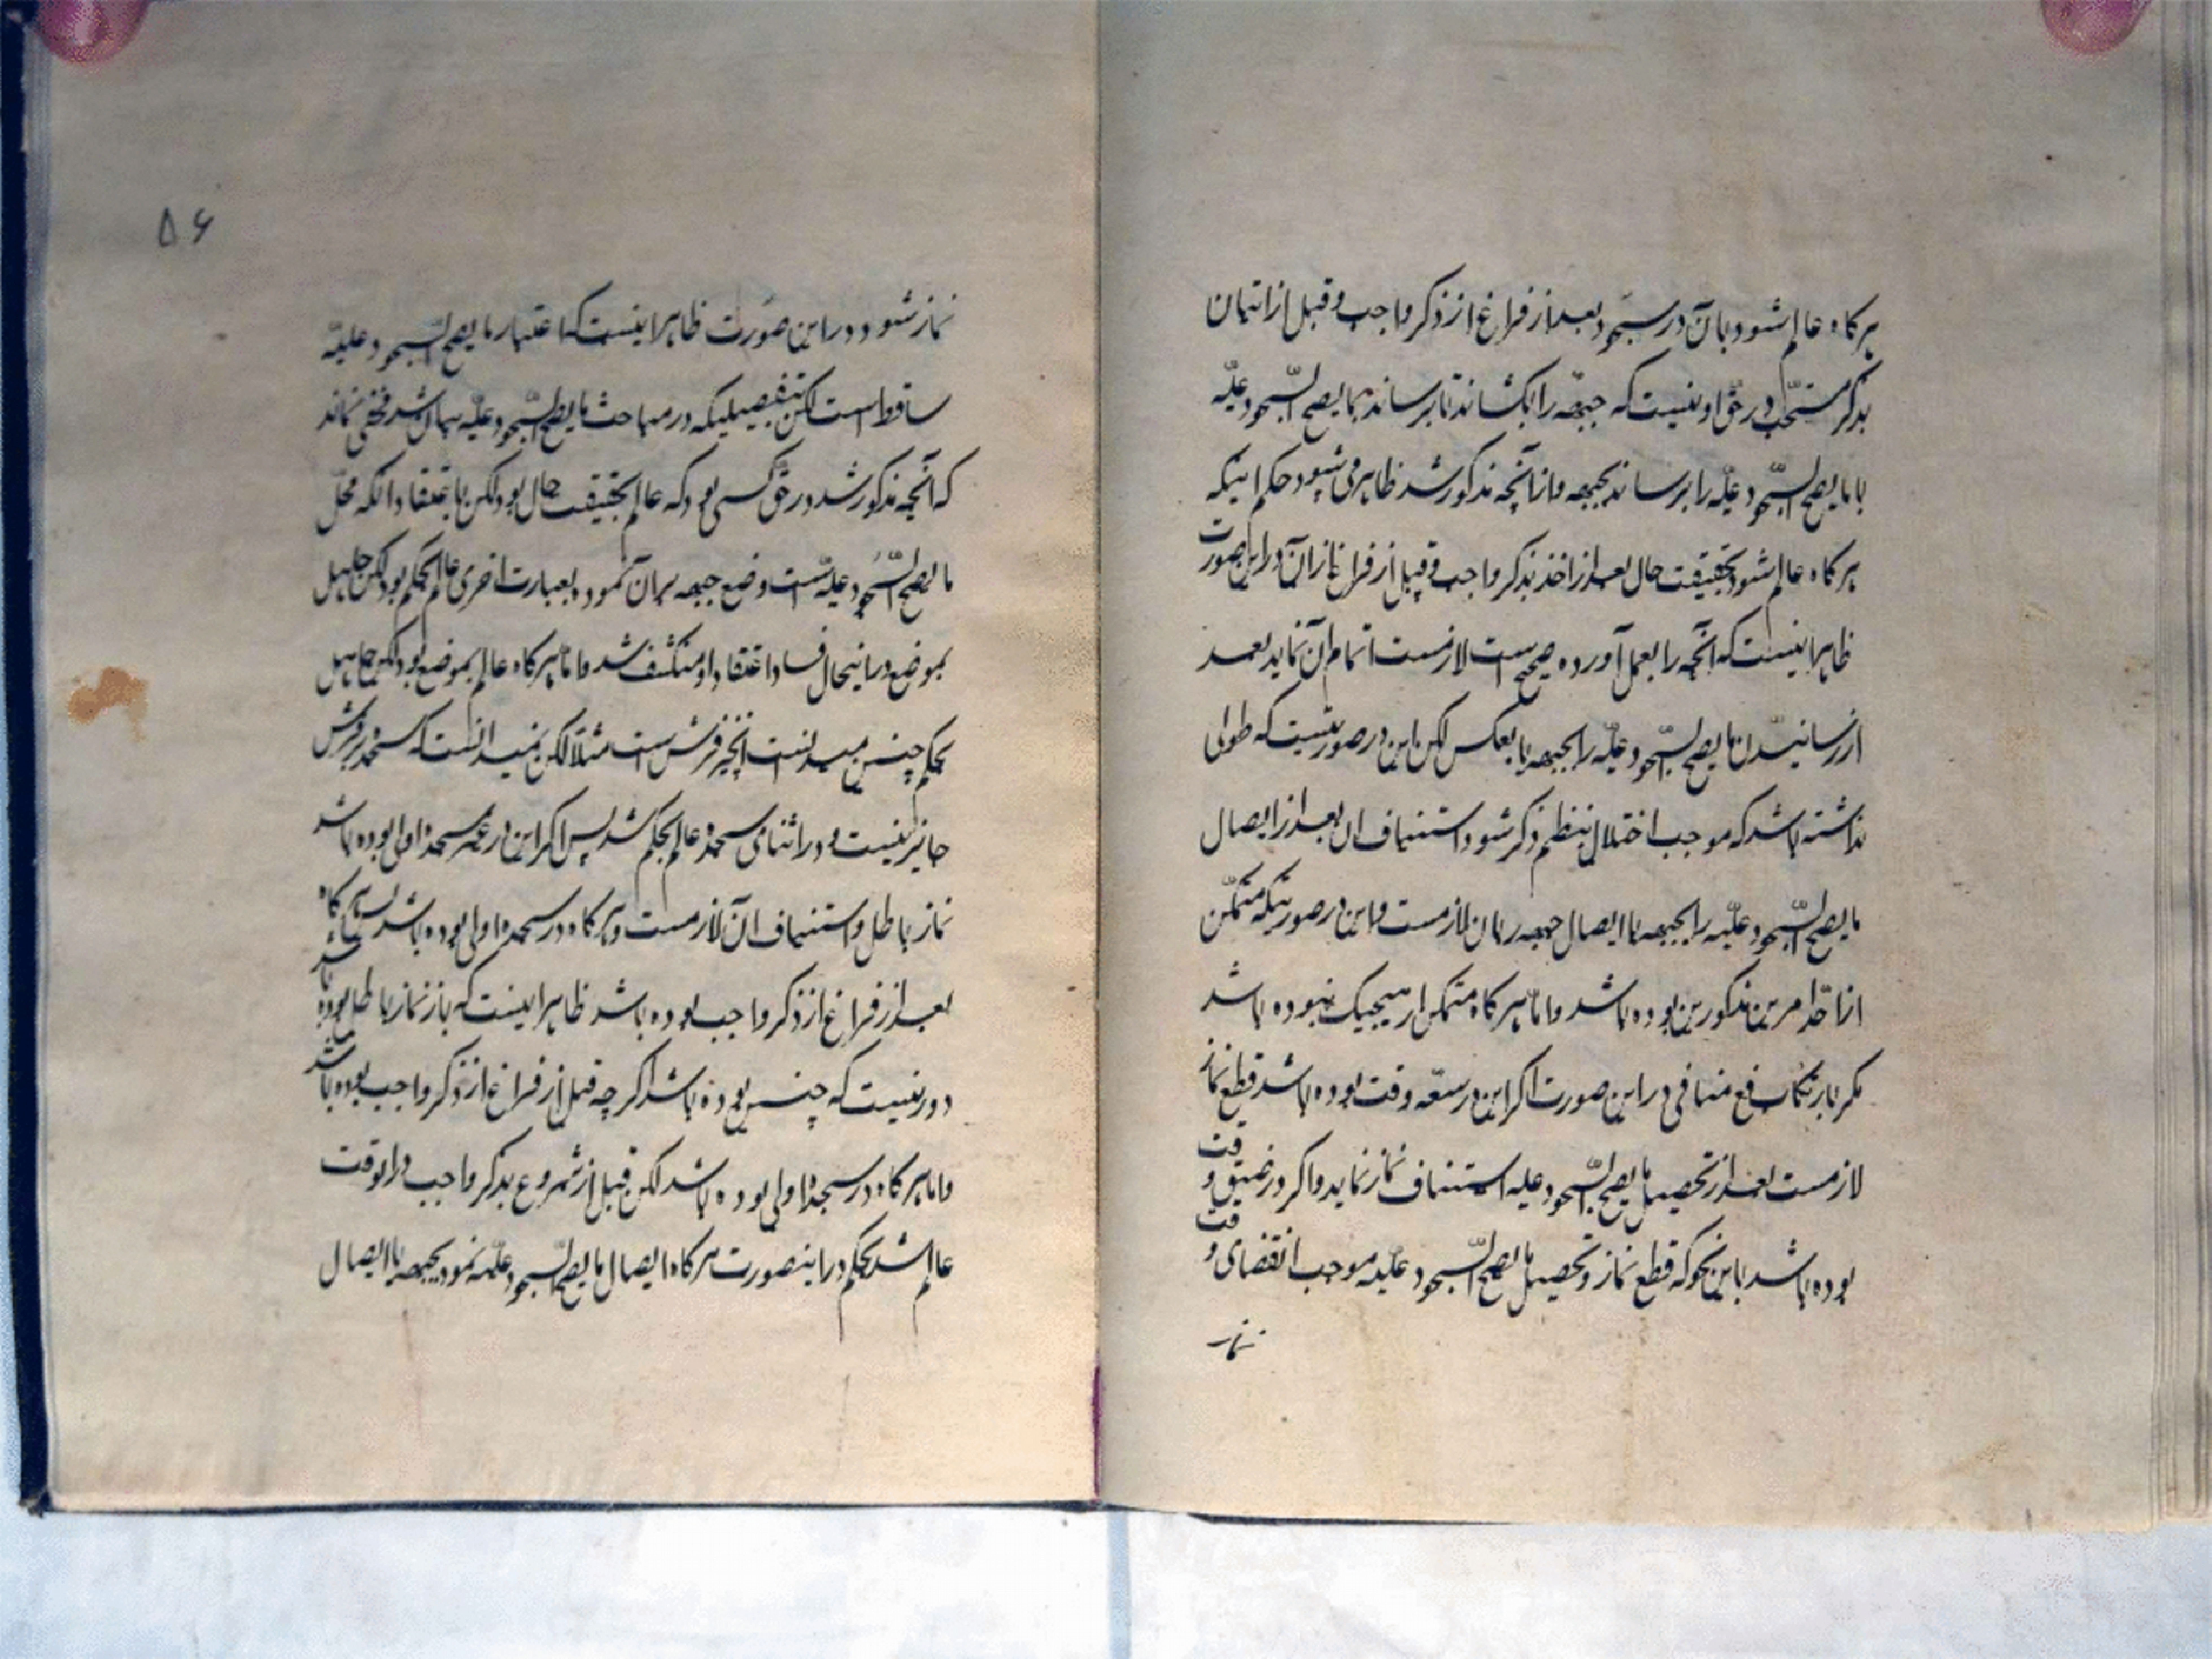 هرکاه عالم شود بآن در سجود بعد از فراغ از ذکر واجب و قبل از اتیان
بذکر مستحب در حق او نیست که جبهه را بکشاند تا برساند بما یصح السجود علیه
یا ما یصح السجود علیه را برساند بجبهه و از آنچه مذکور شد ظاهر می شود حکم اینکه
هرکاه عالم شود بحقیقت حال بعد از اخذ بذکر واجب و قبل از فراغ از آن در این صورت
ظاهر اینست که آنچه را بعمل آورده صحیح است لازمست اتمام آن نماید بعد
از رسانیدن ما یصح السجود علیه را بجبهه یا بعکس لکن این در صورتیست که طولی
نداشته باشد که موجب اختلال بنظم ذکر شود و استیناف ان بعد از ایصال
ما یصح السجود علیه را بجبهه یا ایصال جبهه بان لازمست و این در صورتیکه متمکن
از احد امرین مذکورین بوده باشد و اما هرکاه متمکن از هیچیک نبوده باشد
مکر بارتکاب فع منافی در این صورت اکر این در سعه وقت بوده باشد قطع نماز
لازمست بعد از تحصیل ما یصح السجود علیه استیناف نماز نماید و اکر در ضیق وقت
بوده باشد باین نحو که قطع نماز و تحصیل ما یصح السجود علیه موجب انقضای وقت
نماز
۵۶
نماز شود در این صورت ظاهر اینست که اعتبار ما یصح السجود علیه
ساقط است لکن بتفصیلیکه در مباحث ما یصح السجود علیه بیان شد مخفی نماند
که آنچه مذکور شد در حق کسی بود که عالم بحقیقت حال بود لکن باعتقاد انکه محل
ما یصح السجود علیه است وضع جبهه بران نموده بعبارت اخری عالم بحکم بود لکن جاهل
بموضع در اینحال فساد اعتقاد او منکشف شد و اما هرکاه عالم بموضع بود لکن جاهل
بحکم چنین میدانست انچیز فرش است مثلا لکن نمیدانست که سجده بر فرش
جایز نیست و در اثنای سجده عالم بحکم شد پس اکر این در غیر سجده اولی بوده باشد
نماز باطل و استیناف ان لازمست و هرکاه در سجده اولی بوده باشد پس هرکاه
بعد از فراغ از ذکر واجب بوده باشد ظاهر اینست که باز نماز باطل بوده باشد
دور نیست که چنین بوده باشد اکر چه قبل از فراغ از ذکر واجب بوده باشد
و اما هرکاه در سجده اولی بوده باشد لکن قبل از شروع بذکر واجب در انوقت
عالم شد بحکم در اینصورت هرکاه ایصال ما یصح السجود علیه نمود بجبهه یا ایصال